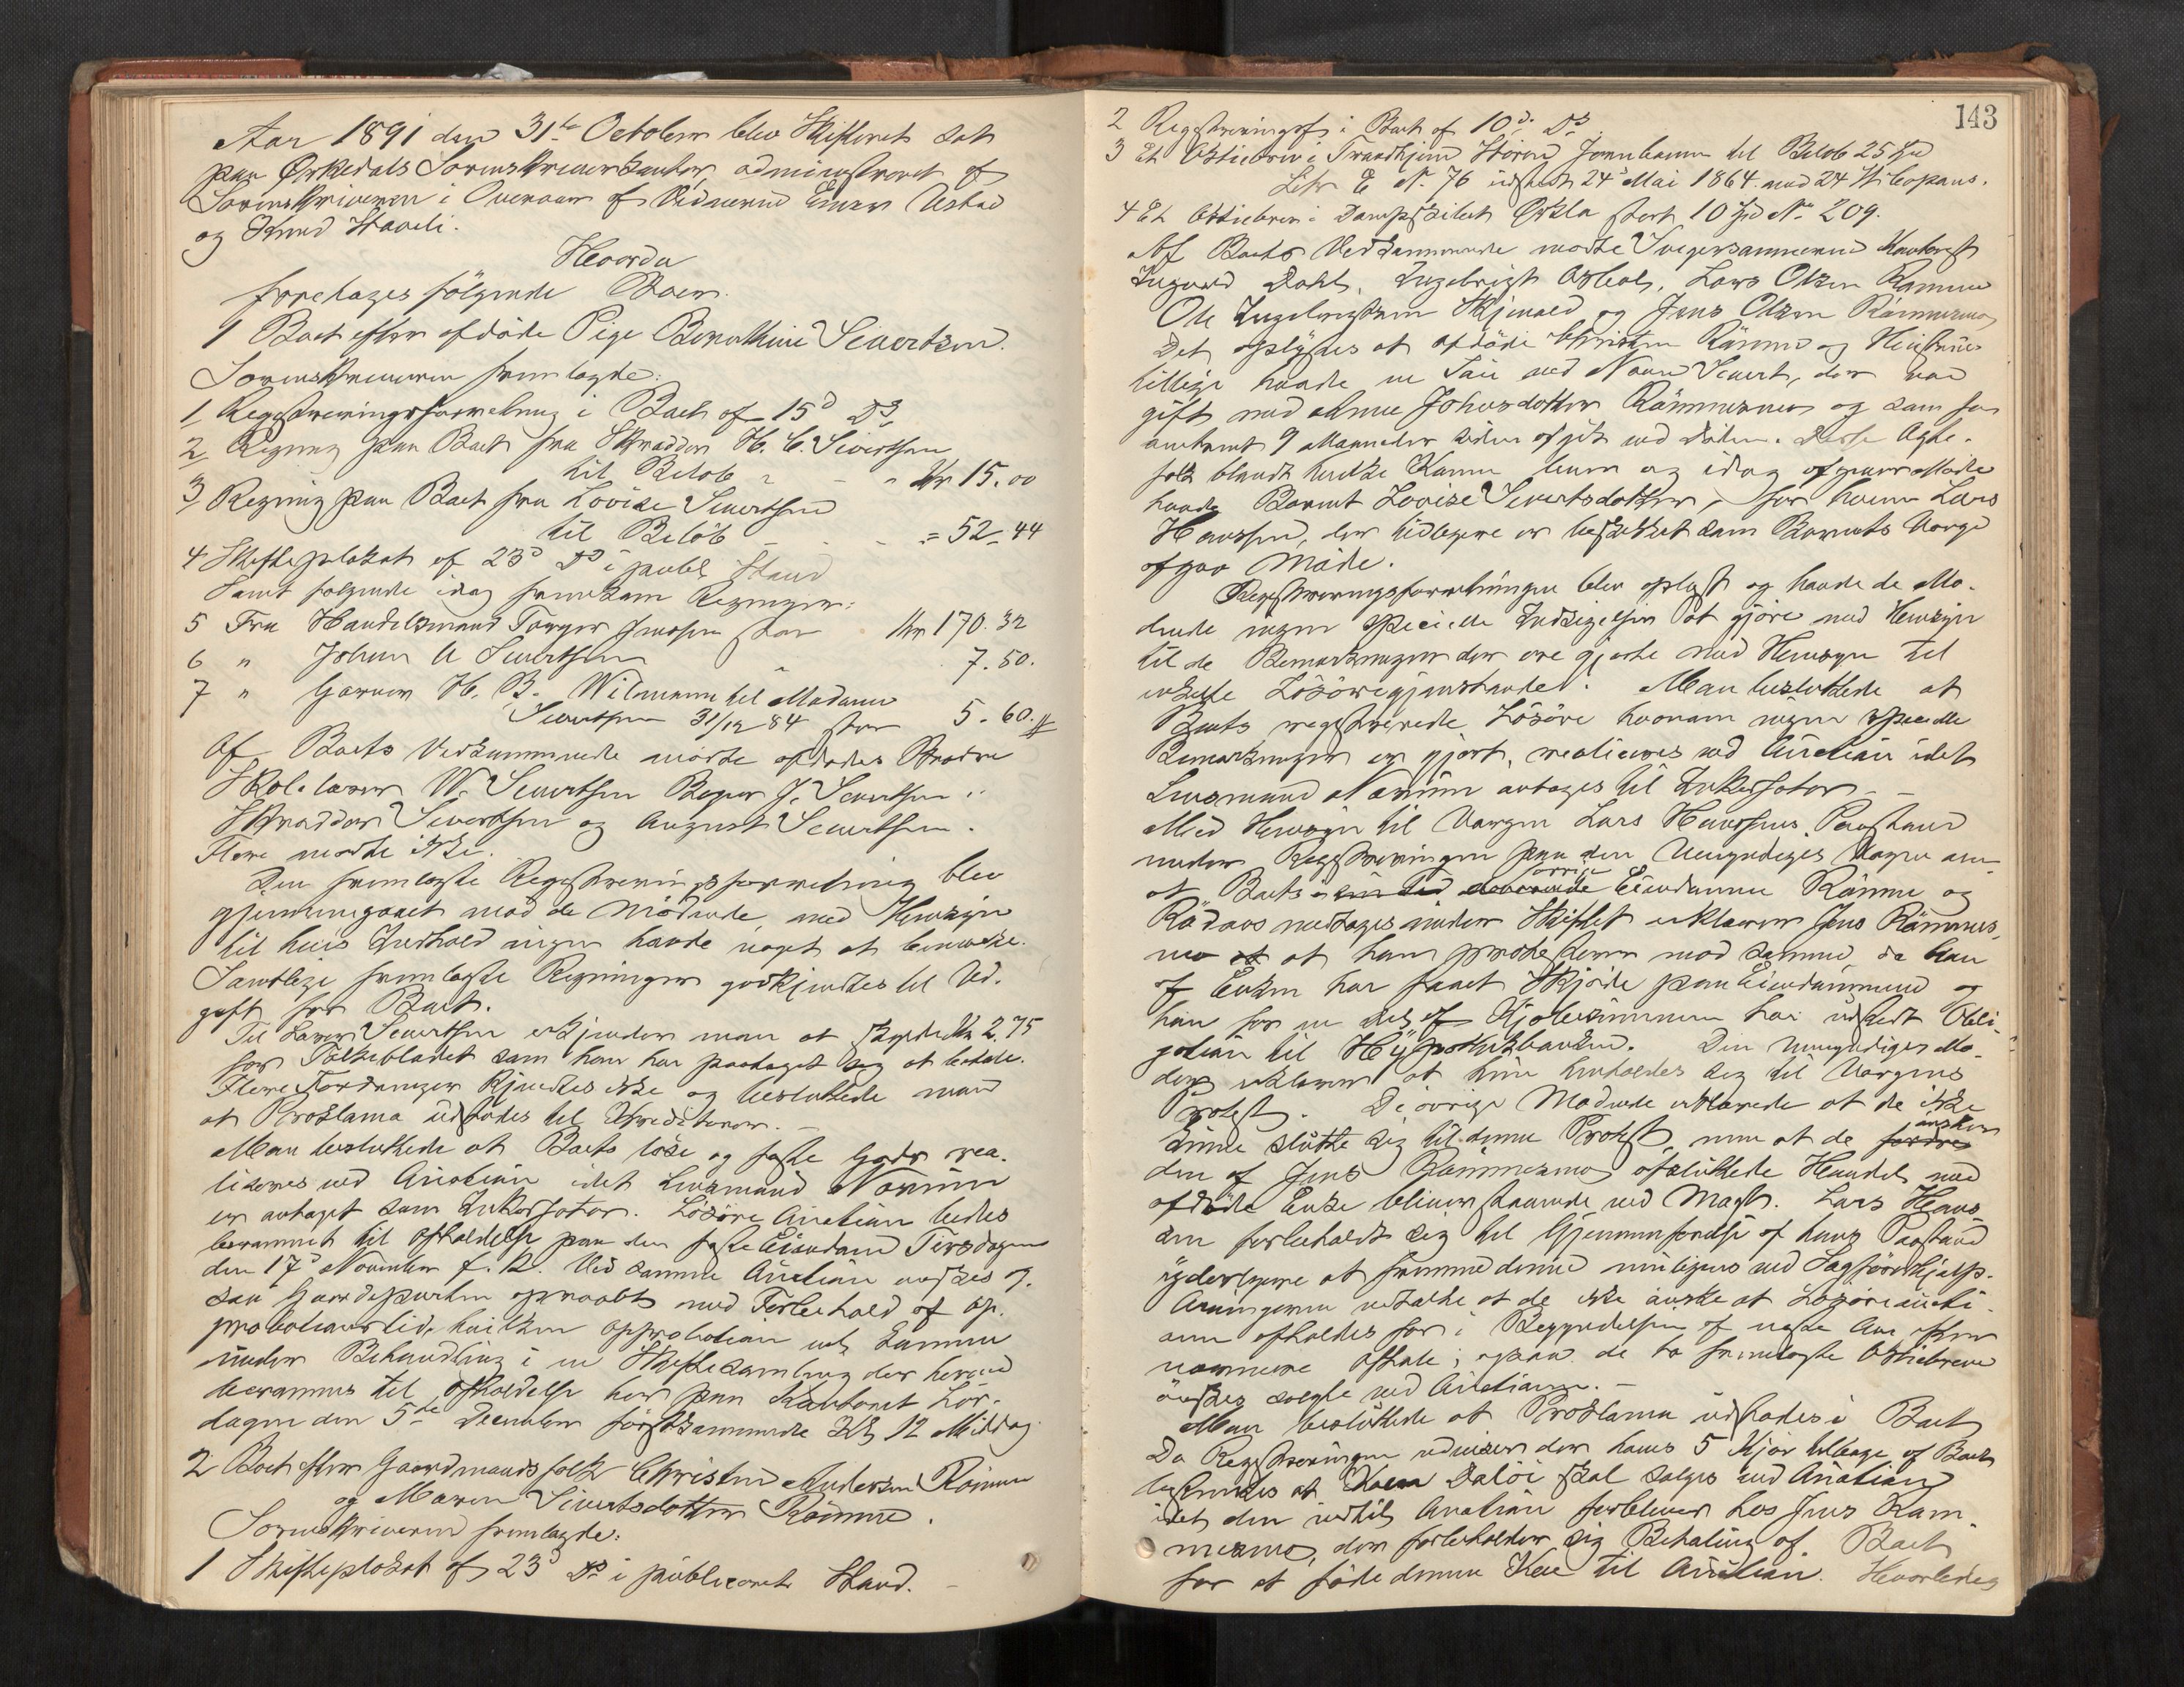 Aar 1891 den 31te October blev Skifteret sat
paa Ørkedals Sorenskriverkontor, administreret af
Sorenskriveren i Overvær af Vidnerne Einar Ustad
og Knud Staveli.
Hvorda
foretages følgende Boer.
1 Boet efter afdøde Pige Bernthine Sivertsen.
Sorenskriveren fremlagde:
1 Registreringsforretning i Boet af 15d Ds
2 Regning paa Boet fra Skrædder H. C. Sivertsen
til Beløb " - " Kr 15.00
3 Regning paa Boet fra Lovise Sivertsen
til Beløb - - - = 52 - 44
4 Skifteplakat af 23d Ds i publ. Stand
Samt følgende idag fremkom Regninger:
5 Fra Handelsmand Torger Jenssen stor Kr 170.32
6 " Johan A Sivertsen " 7.50.
7 " Garver H. B. Wilmann til Madame
Sivertsen 31/12 84 stor 5.60.
Af Boets Vedkommende mødte afdødes Brødre
Skolelærer W. Sivertsen Bager J. Sivertsen
Skrædder Sivertsen og August Sivertsen.
Flere mødte ikke.
Den fremlagte Registreringsforretning blev
gjennemgaaet med de Mødende, med Hensyn
til hvis Indhold ingen havde noget at bemærke.
Samtlige fremlagte Regninger godkjendtes til Ud-
gift for Boet.
Til Lærer Sivertsen erkjender man at skylde Kr 2.75
for Folkebladet som han har paataget sig at betale.
Flere Fordringer kjendtes ikke og besluttede man
at Proklama udstedes til Kreditorer. -
Man besluttede at Boets løse og faste Gods rea-
liseres ved Auction idet Lensmand Norum
er antaget som Inkassator. Løsøre Auction bedes
berammet til Afholdelse paa den faste Eiendom Tirsdagen
den 17d November f. k. Ved samme Auction ønskes og-
saa Gaardeparten opraabt med Forbehold af Ap-
probationstid, hvilken Approbation vil komme
under Behandling i en Skiftesamling der herved
berammes til Afholdelse her paa Kontoret Lør-
dagen den 5te December førstkommende Kl 12 Middag.
2 Boet efter Gaardmandsfolk Christen Andersen Rømme
og Maren Sivertsdatter Rømme.
Sorenskriveren fremlagde:
1 Skifteplakat af 23d Ds i publiceret Stand. -
143
2 Registreringsf. i Boet af 10d. Ds.
3 Et Aktiebrev i Trondhjem Støren Jernbane til Beløb 25 Spd
Litr E No. 76 udstedt 24d Mai 1864 med 24 St Coupons.
4 Et Aktiebrev i Dampskibet Ørkla stort 10 Spd No 209.
Af Boets Vedkommende mødte Svigersønnerne Kontorist
Ingvard Dahl, Ingebrigt Asbøl, Lars Olsen Rømme
Ole Ingebrigtsen Skjenald og Jens Olsen Römmesmo
Det oplystes at afdøde Christen Rømme og Hustru
tillige havde en Søn ved Navn Sivert, der var
gift med Anne Johnsdatter Römmesmo og som for
omtrent 9 Maaneder siden afgik ved Døden. Disse Ægte-
folk blandt hvilke Kone lever og idag afgiver Møde
havde Barnet Lovise Sivertsdatter, for hvem Lars
Hanssen, der tidligere er beskikket som Barnets Værge
afgav Møde.
Registreringsforretningen blev oplæst og havde de Mø-
dende ingen specielle Indsigelser at gjøre med Hensyn
til de Bemærkninger der ere gjorte med Hensyn til
enkelte Løsøregjenstande. Man besluttede at
Boets registrerede Løsøre hvorom ingen specielle
Bemærkninger er gjort, realiseres ved Auction idet
Lensmand Norum antages til Inkassator. -
Med Hensyn til Værgen Lars Hanssens Paastand
under Registreringen paa den Umyndiges Vegne om
at Boets forrige Eiendomme Rømme og
Rødaas medtages under Skiftet erklærer Jens Römmes-
mo at han protesterer mod samme, da han
af Enken har faaet Skjøde paa Eiendommene og
han for en Del af Kjøbesummen har udstedt Obli-
gation til Hypothekbanken. Den Umyndiges Mo-
der erklærer at hun henholder sig til Værgens
Protest. De øvrige Mødende erklærede at de ikke
kunne slutte sig til denne Protest, men at de ønsker
den af Jens Römmesmo afsluttede Handel med
afdøde Enke bliver staaende ved Magt. Lars Hans-
sen forbeholdt sig til Gjennemførelse af hans Paastand
yderligere at fremme denne muligens ved Sagførerhjælp.
Arvingerne udtalte at de ikke ønske at Løsøreaucti-
onen afholdes før i Begyndelsen af næste Aar efter
nærmere Aftale; ogsaa de to fremlagte Aktiebreve
ønskes solgte ved Auctionen. -
Man besluttede at Proklama udstedes i Boet
Da Registreringen udviser der haves 5 Kjør tilbage af Boets
bestemtes at Koen Daløi skal selges ved Auction
idet den indtil Auction forbliver hos Jens Röm-
mesmo, der forbeholder sig Betaling af Boet
for at føde denne Ko til Auction. Hvorledes